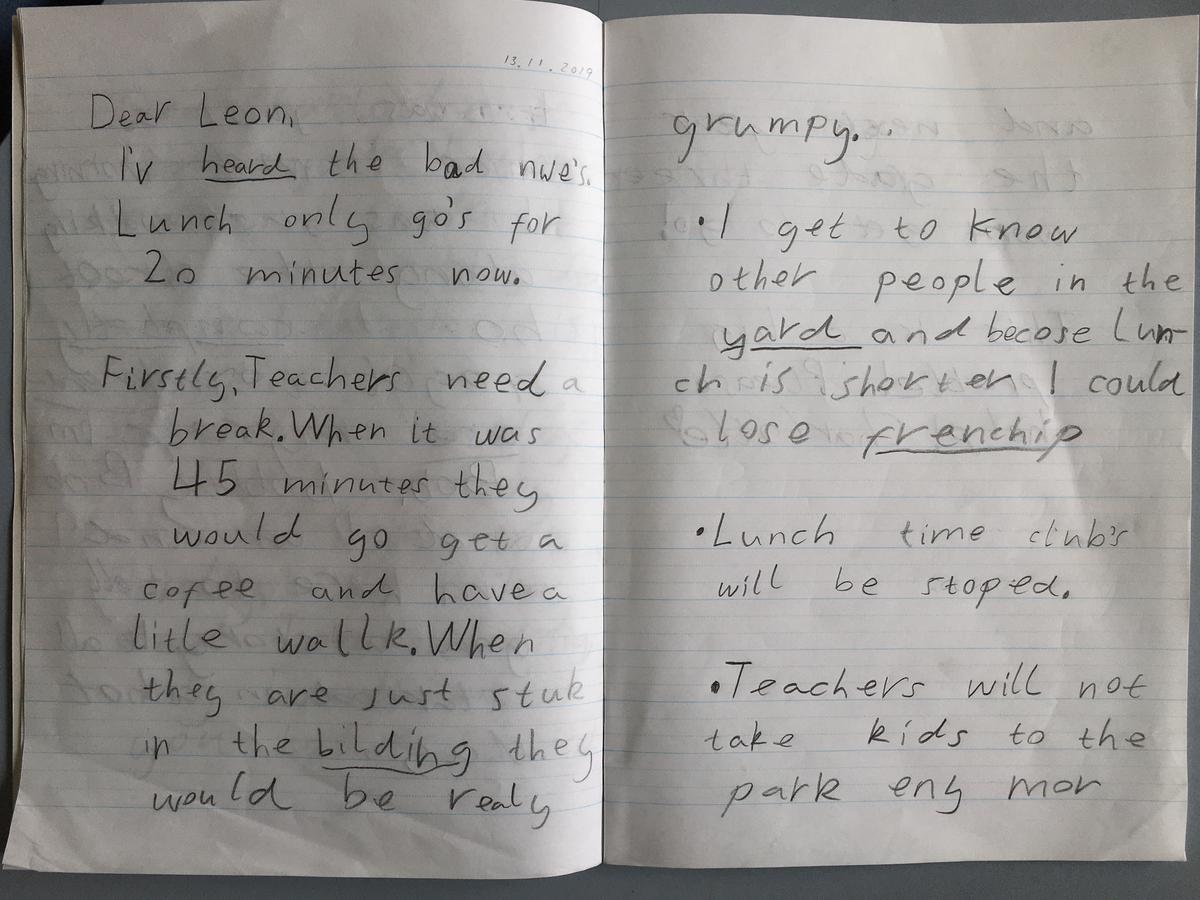 13.11.2019
Dear Leon,
I'v heard the bad nwe's.
Lunch only go's for
20 minutes now.
Firstly, Teachers need a
break. When it was
45 minutes they
would go get a
cofee and have a
litle wallk. When
they are just stuk
in the bilding they
would be realy
grumpy..
•I get to know
other people in the
yard and becose lun-
ch is shorter I could
lose frenchip
•Lunch time club's
will be stoped.
•Teachers will not
take kids to the
park eny mor